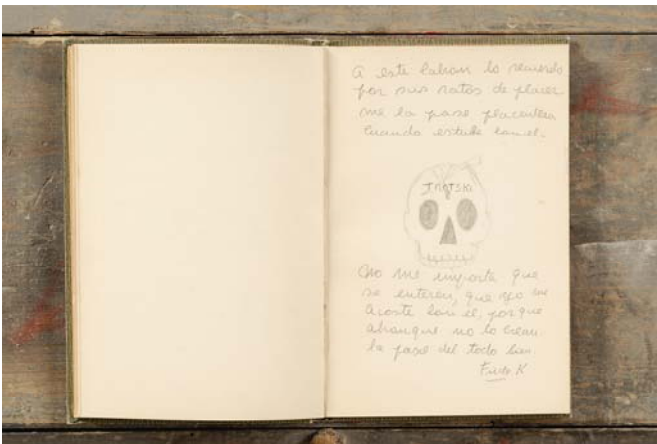 A este kabron lo recuerdo
por sus ratos de placer
me la pase placentera
Cuando estube kon el.
TROTSKI
No me importa que
se enteren, que yo me
acoste kon el, porque
ahunque no lo crean
la pase del todo bien
Frida. K